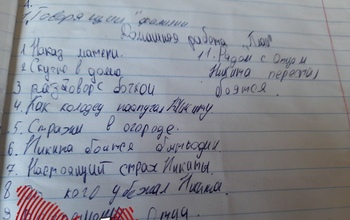 "Говорящими" фамилии
Домашняя работа
1. Наказ матери.
2. Скучно в доме
3 разговор с бочкой
4. Как колодец напугал Никиту.
5. Страхи в огороде.
6. Никита боится
7. Настоящий страх Никиты.
8 кого убежал Никита.
9 отца
11. Рядом с отцом
Никита перестал
боятся.